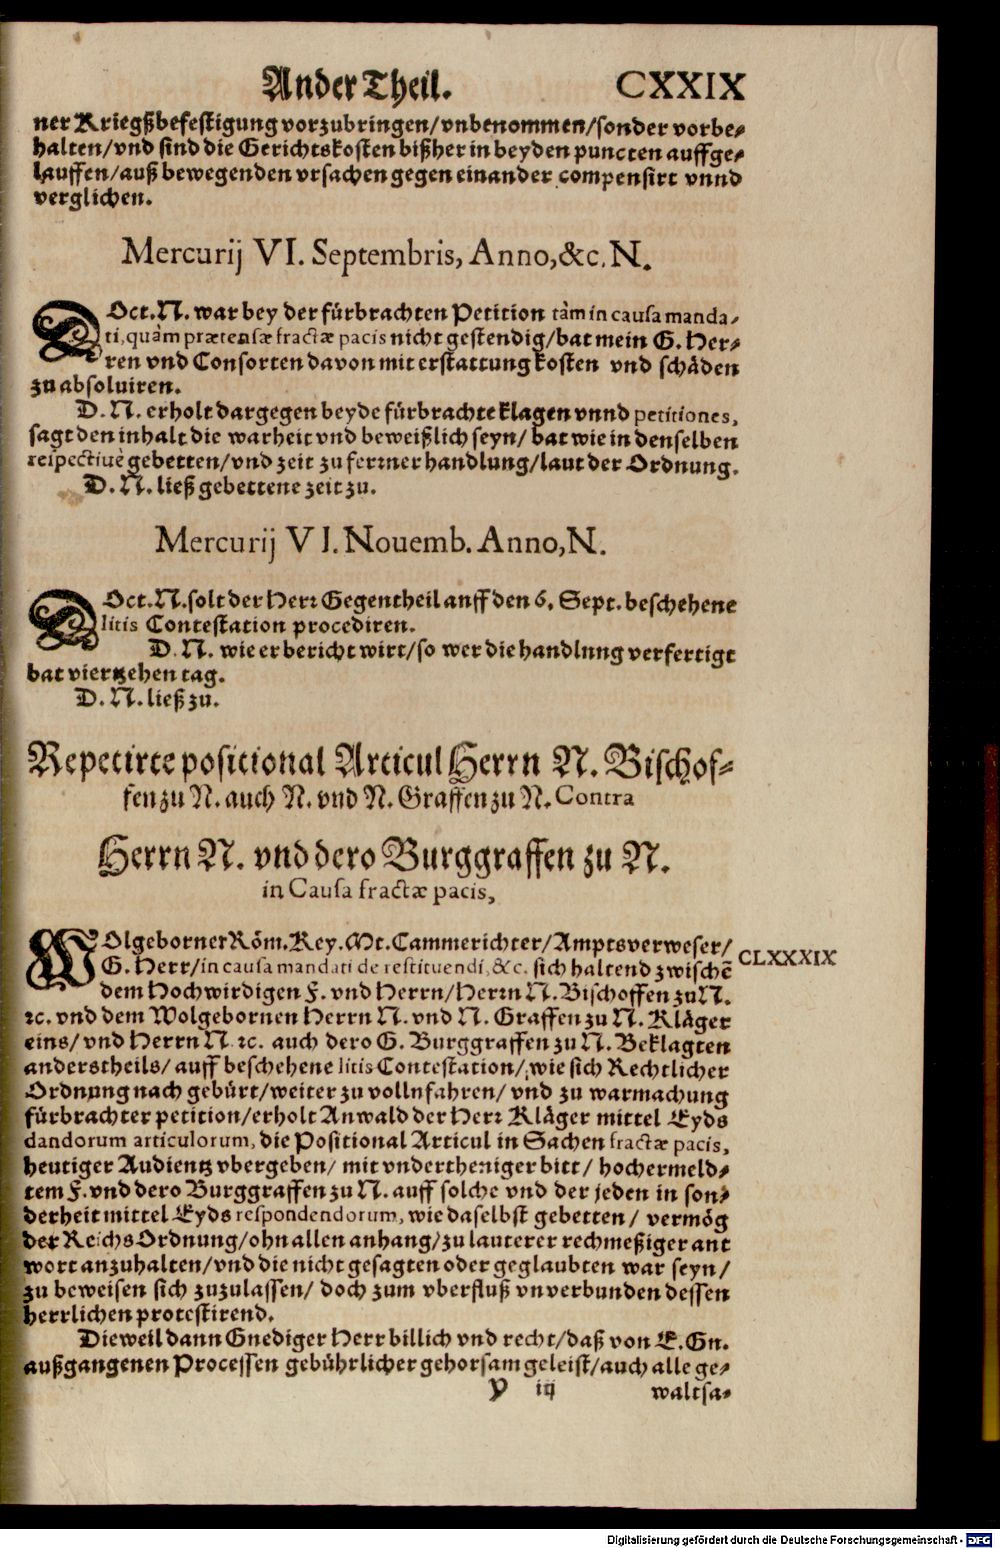 Ander Theil. CXXIX
ner Kriegßbefestigung vorzubringen/vnbenommen/sonder vorbe-
halten/vnd sind die Gerichtskosten bißher in beyden puncten auffge-
lauffen/auß bewegenden vrsachen gegen einander compensirt vnnd
verglichen.
Mercurij VI. Septembris, Anno,&c. N.
DOct. N. war bey der fürbrachten Petition tàm in causa manda-
ti, quàm prætensæ fractæ pacis nicht gestendig/bat mein G. Her-
ren vnd Consorten davon mit erstattung kosten vnd schäden
zu absoluiren.
D. N. erholt dargegen beyde fürbrachte klagen vnnd petitiones,
sagt den inhalt die warheit vnd beweißlich seyn/ bat wie in denselben
respectiuè gebetten/vnd zeit zu ferrner handlung/laut der Ordnung.
D. N. ließ gebettene zeit zu.
Mercurij VI. Nouemb. Anno, N.
DOct. N. solt der Herr Gegentheil auff den 6. Sept. beschehene
litis Contestation procediren.
D. N. wie er bericht wirt/so wer die handlung verfertigt
bat viertzehen tag.
D. N. ließ zu.
Repetirte positional Articul Herrn N. Bischof-
fen zu N. auch N. vnd N. Graffen zu N. Contra
Herrn N. vnd dero Burggraffen zu N.
in Causa fractæ pacis,
WOlgeborner Röm. Key. Mt. Cammerichter/Amptsverweser/
G. Herr/in causa mandati de restituendi, &c. sich haltend zwischē CLXXXIX
dem Hochwirdigen F. vnd Herrn/Herrn N. Bischoffen zu N.
ꝛc. vnd dem Wolgebornen Herrn N. vnd N. Graffen zu N. Kläger
eins/ vnd Herrn N. ꝛc. auch dero G. Burggraffen zu N. Beklagten
anderstheils/ auff beschehene litis Contestation/ wie sich Rechtlicher
Ordnung nach gebürt/weiter zu vollnfahren/ vnd zu warmachung
fürbrachter petition/erholt Anwald der Herr Kläger mittel Eyds
dandorum articulorum, die Positional Articul in Sachen fractæ pacis,
heutiger Audientz vbergeben/ mit vndertheniger bitt/ hochermeld-
tem F. vnd dero Burggraffen zu N. auff solche vnd der jeden in son-
derheit mittel Eyds respondendorum, wie daselbst gebetten/ vermög
der Reichs Ordnung/ohn allen anhang/zu lauterer rechmeßiger ant
wort anzuhalten/vnd die nicht gesagten oder geglaubten war seyn/
zu beweisen sich zuzulassen/ doch zum vberfluß vnverbunden dessen
herrlichen protestirend.
Dieweil dann Gnediger Herr billich vnd recht/daß von E. Gn.
außgangenen Processen gebührlicher gehorsam geleist/auch alle ge-
Y iij waltsa-
Digitalisierung gefördert durch die Deutsche Forschungsgemeinschaft - DFG